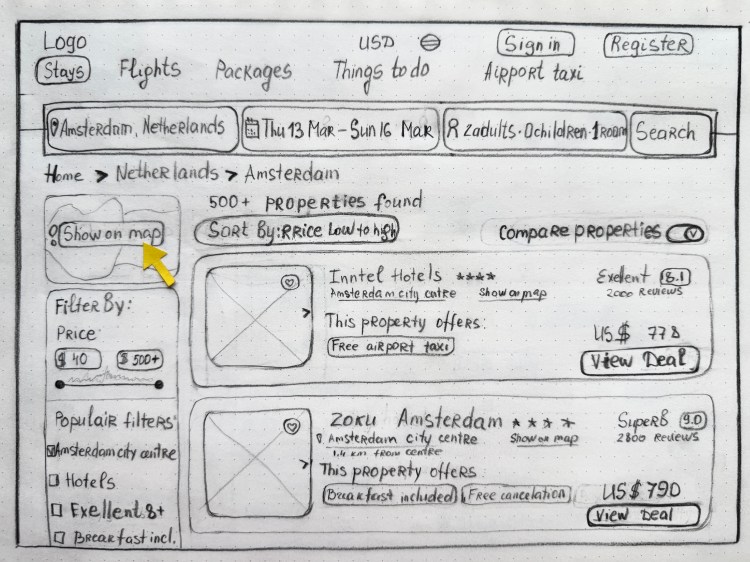 Logo USD Sign in Register
Stays Flights Packages Things to do Airport taxi
Amsterdam, Netherlands Thu 13 Mar - Sun 16 Mar 2adults · 0children · 1room Search
Home > Netherlands > Amsterdam
500+ properties found
Show on map
Sort By: Price Low to high Compare properties
Filter By:
Price
$ 40 $ 500+
Populair filters:
Amsterdam city centre
Hotels
Exellent 8+
Breakfast incl.
Inntel Hotels **** Exellent 8.1
Amsterdam city centre Show on map 2000 Reviews
This property offers:
Free airport taxi
US $ 778
View Deal
Zoku Amsterdam **** Superb 9.0
Amsterdam city centre Show on map 2800 Reviews
1.4 km from centre
This property offers
Breakfast included Free cancelation
US $ 790
View Deal